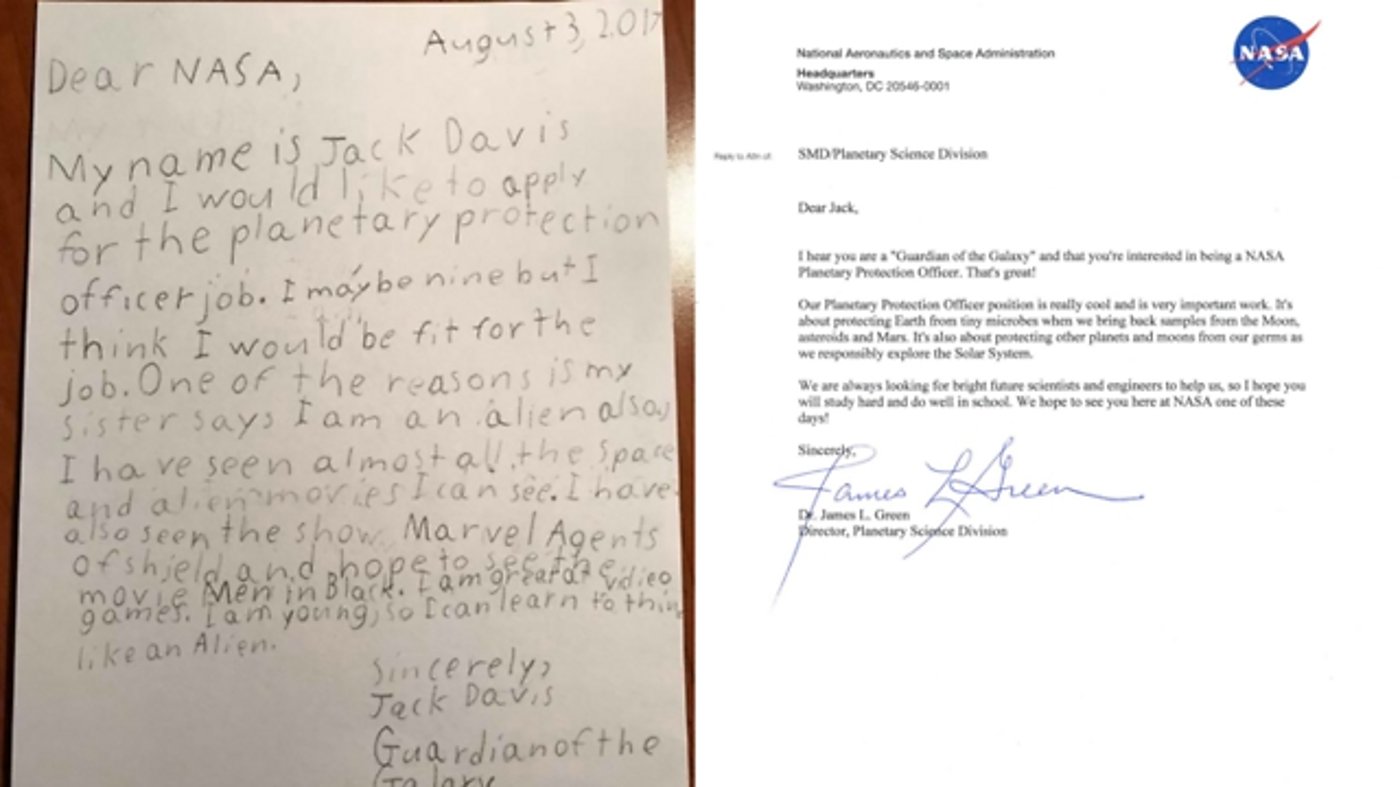 August 3, 2017
Dear NASA,
My name is Jack Davis
and I would like to apply
for the planetary protection
officer job. I maybe nine but I
think I would be fit for the
job. One of the reasons is my
sister says I am an alien also,
I have seen almost all the space
and alien movies I can see. I have
also seen the show Marvel Agents
of shield and hope to see the
movie Men in Black. I am great at vidieo
games. I am young, so I can learn to thin
like an Alien.
Sincerely,
Jack Davis
Guardian of the
Galaxy
NASA
National Aeronautics and Space Administration
Headquarters
Washington, DC 20546-0001
Reply to Attn of:
SMD/Planetary Science Division
Dear Jack,
I hear you are a "Guardian of the Galaxy" and that you're interested in being a NASA
Planetary Protection Officer. That's great!
Our Planetary Protection Officer position is really cool and is very important work. It's
about protecting Earth from tiny microbes when we bring back samples from the Moon,
asteroids and Mars. It's also about protecting other planets and moons from our germs as
we responsibly explore the Solar System.
We are always looking for bright future scientists and engineers to help us, so I hope you
will study hard and do well in school. We hope to see you here at NASA one of these
days!
Sincerely,
James L Green
Dr. James L. Green
Director, Planetary Science Division